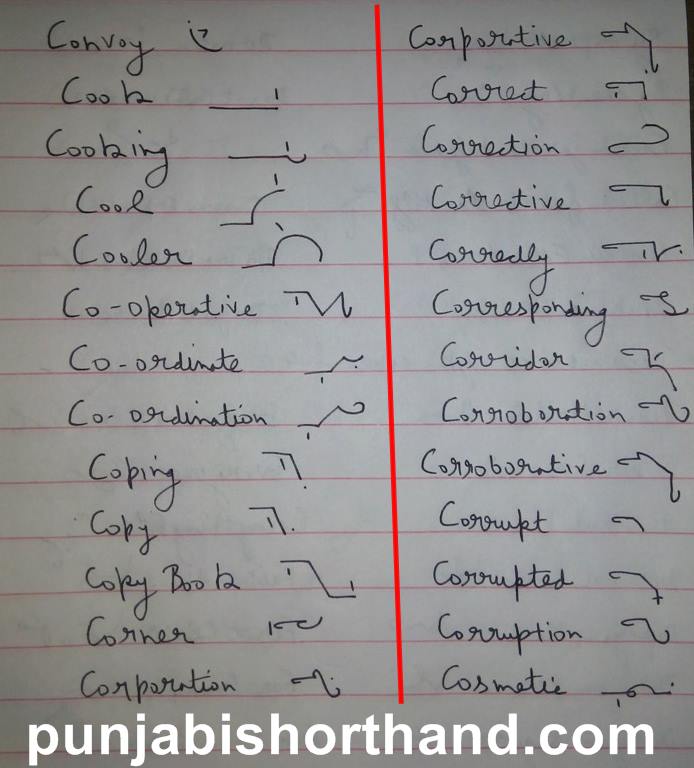 Convoy
Cook
Cooking
Cool
Cooler
Co-operative
Co-ordinate
Co-ordination
Coping
Copy
Copy Book
Corner
Corporation
Corporative
Correct
Correction
Corrective
Corredly
Corresponding
Corridor
Corroboration
Corroborative
Corrupt
Corrupted
Corruption
Cosmetic
punjabishorthand.com